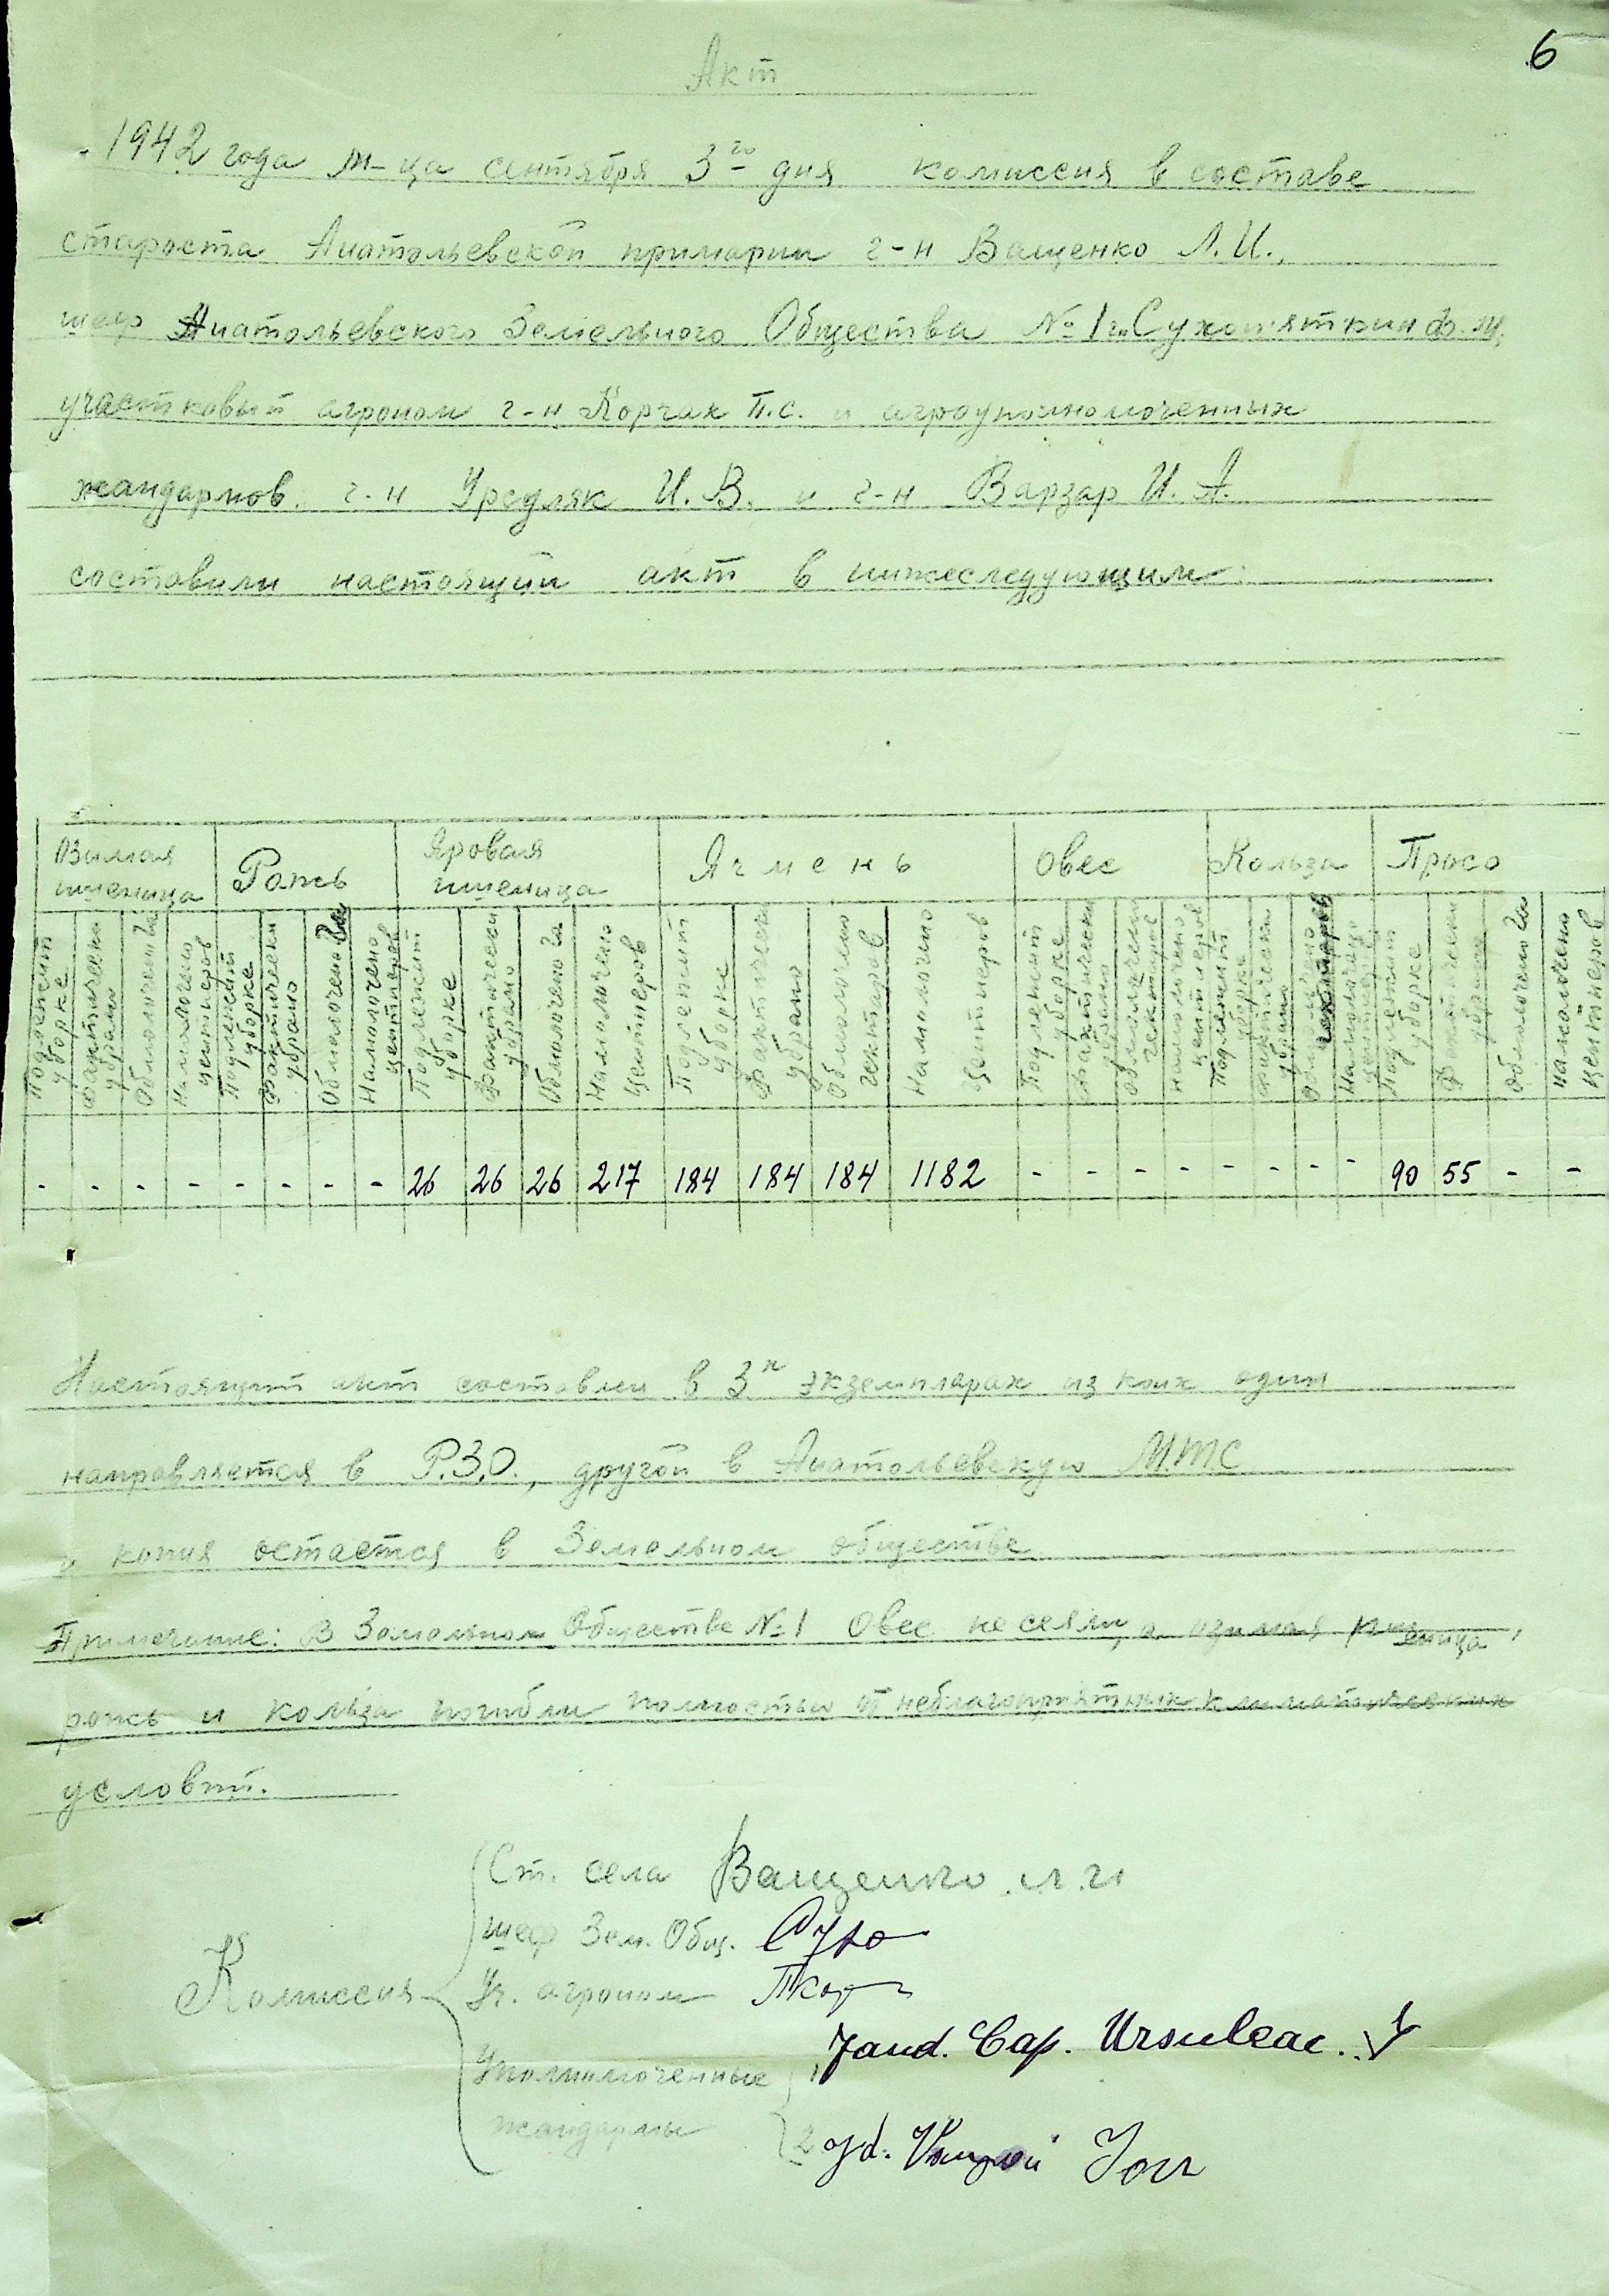 6
Акт
1942 года м-ца сентября 3го дня комиссия в составе
староста Анатольевской примарии г-н Ващенко Л. И.,
шеф Анатольевского Земельного Общества № 1 г. Сухопяткин
участковый агроном г-н Корчак П.С. и агроуполномоченных
жандармов. г-н Урсуляк И. В. и г-н Варзар И. А.
составили настоящий акт в нижеследующим:
Озимая пшеница Рапсь Яровая пшеница Ячмень Овес Кользи Просо
Подлежит уборке Фактически убрано Обмолочен га Намолочено центнеров Подлежит уборке Фактически убрано Обмолочено га Намолочено центнеров Подлежит уборке Фактически убрано Обмолочено га Намолочено центнеров Подлежит уборке Фактически убрано Обмолочено гектаров Намолочено центнеров Подлежит уборке Фактически убрано Обмолочено гектаров Намолочено центнеров Подлежит уборке Фактически убрано Обмолочено гектаров Намолочено центнеров Подлежит уборке Фактически убрано Обмолочено га намолочено центнеров
- - - - - - - - 26 26 26 217 184 184 184 1182 - - - - - - - - 90 55 - -
Настоящий акт составлен в 3х экземплярах из коих один
направляется в Р.З.О., другой в Анатольевскую М.Т.С
и копия остается в Земельном обществе
Примечание: В Земельном Обществе № 1 Овес не сеяли, а озимая пшеница,
рапсь и кольза погибли полностью от неблагоприятных климатических
условий.
Ст. села Ващенко Л.И
шеф Зем. Общ. Сухо
Комиссия Уч. агроном ПКор
Уполномоченные жандармы 1 Jand. Cap. Ursuleac.
2 Jd. Ion